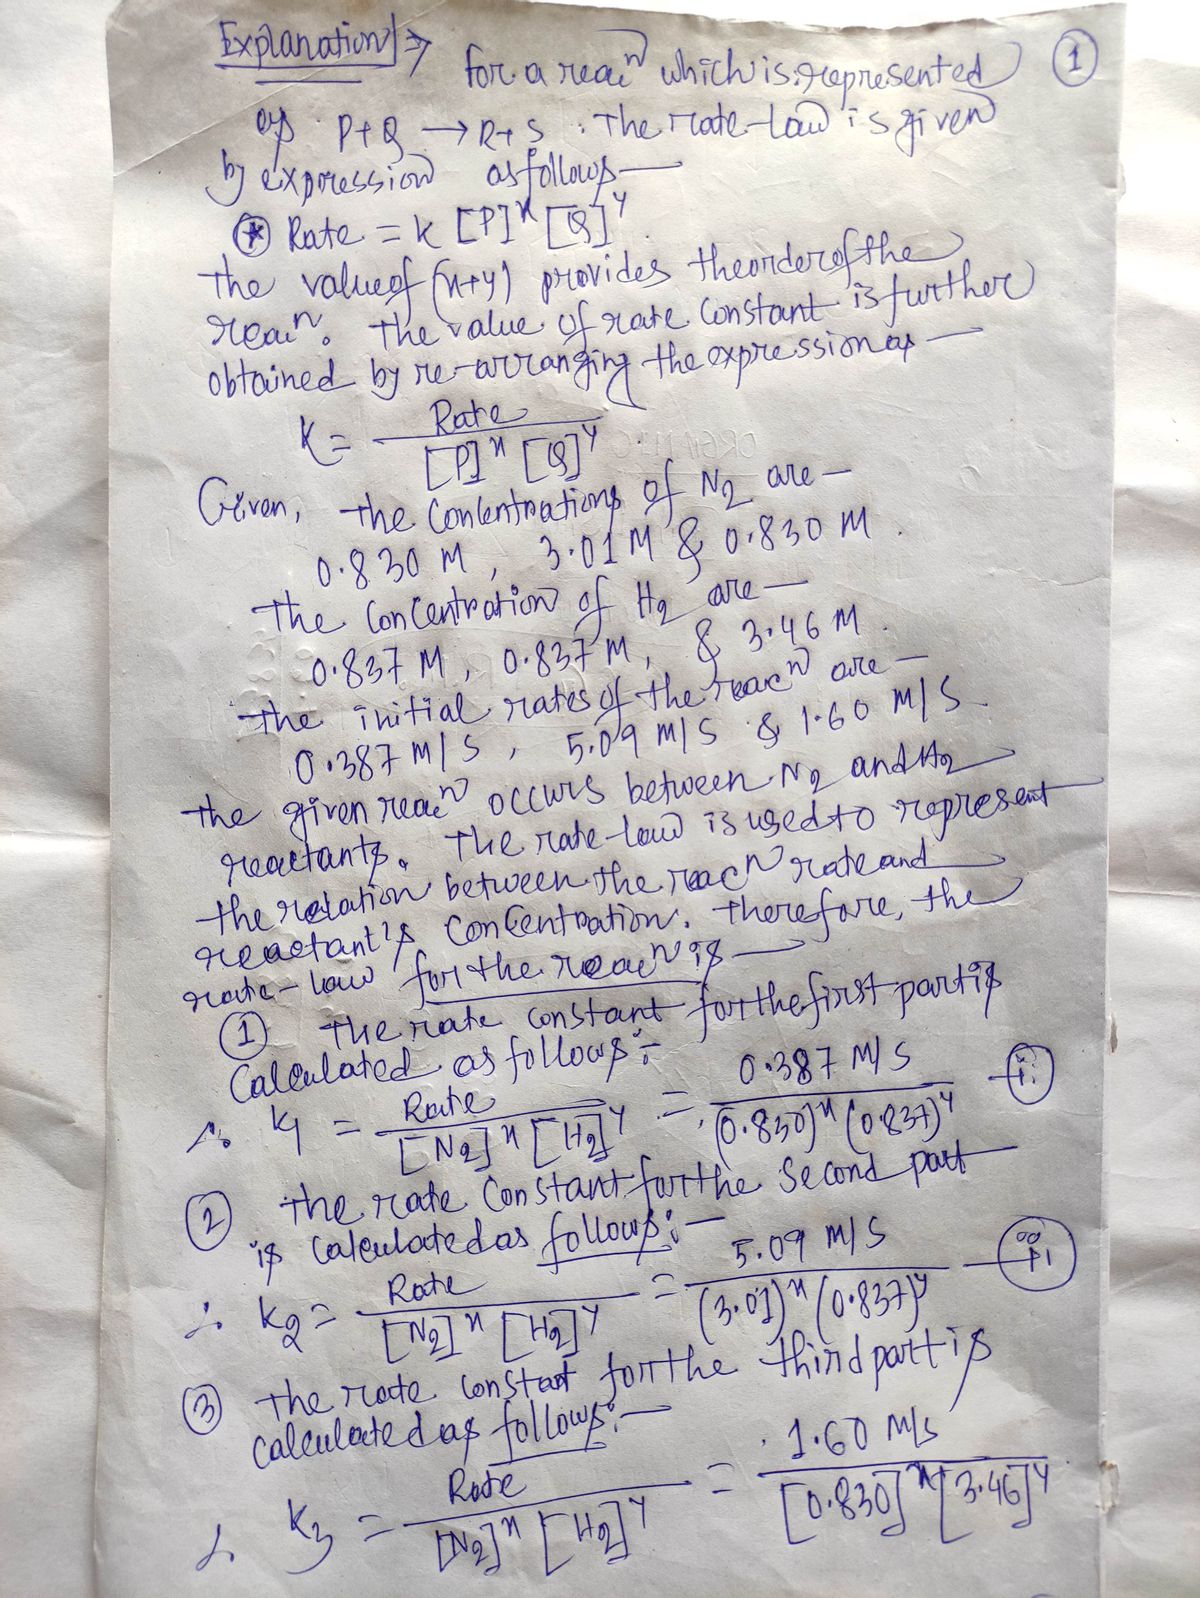 Explanation ⇒
for a reacⁿ which is represented ①
by P+Q → R+S. The rate-law is given
by expression as follows—
⊛ Rate = k [P]ˣ [Q]ʸ.
The value of (x+y) provides the order of the
reacⁿ. The value of rate constant is further
obtained by re-arranging the expression as —
K = Rate / [P]ˣ [Q]ʸ
Given, the concentrations of N2 are —
0.830 M, 3.01 M & 0.830 M.
The concentration of H2 are —
0.837 M, 0.837 M, & 3.46 M.
The initial rates of the reacⁿ are —
0.387 M/S, 5.09 M/S & 1.60 M/S.
The given reacⁿ occurs between N2 and H2
reactants. The rate-law is used to represent
the relation between the reacⁿ rate and
reactant's concentration. Therefore, the
rate-law for the reacⁿ is —
① The rate constant for the first part is
Calculated as follows:-
∴ K1 = Rate / [N2]ˣ [H2]ʸ = 0.387 M/S / (0.830)ˣ (0.837)ʸ — (i)
② The rate constant for the second part
is calculated as follows:—
∴ K2 = Rate / [N2]ˣ [H2]ʸ = 5.09 M/S / (3.01)ˣ (0.837)ʸ — (ii)
③ The rate constant for the third part is
calculated as follows:—
∴ K3 = Rate / [N2]ˣ [H2]ʸ = 1.60 M/s / [0.830]ˣ [3.46]ʸ